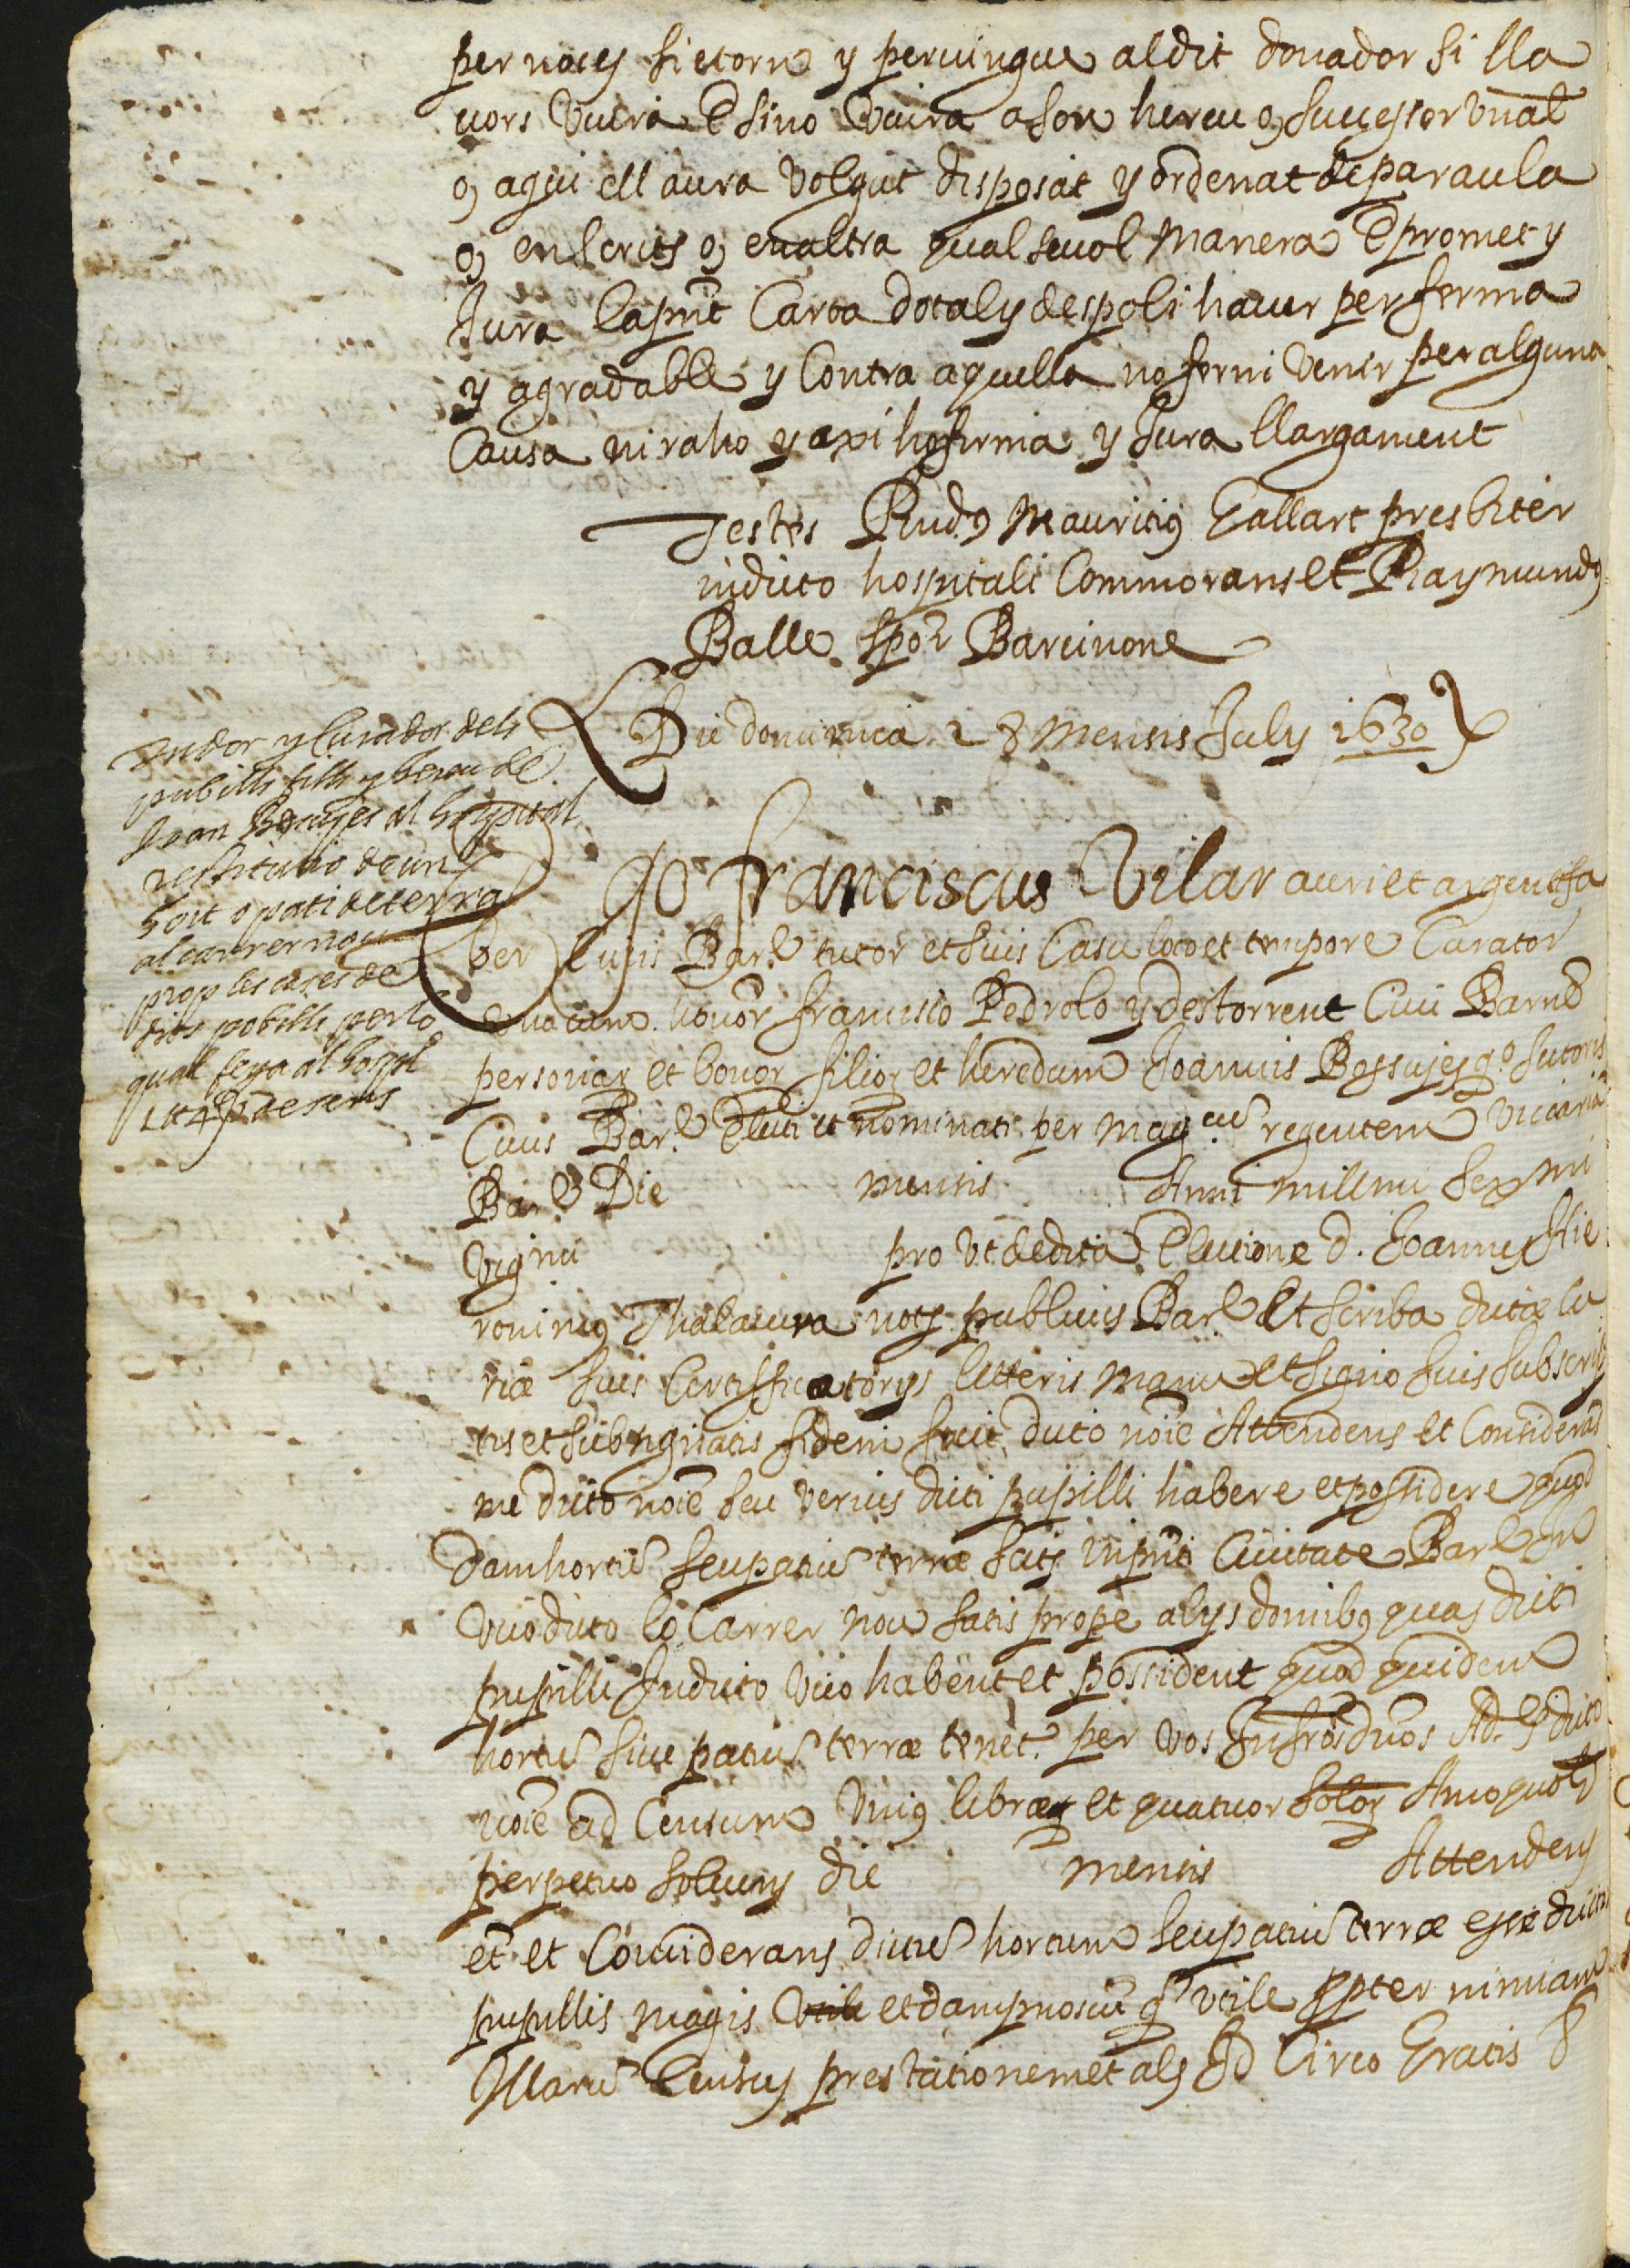 per noces si etorn y pervingue al dit donador si lla
vors viura E sino viura a son hereu o, successor vnal
o, aqui ell aura volgut disposat y ordenat de paraula
o, en scrits o, en altra qualsevol manera E promet y
Jura la pnt Carta dotal y despoli haver per ferma
y agradable y Contra aquella no fer ni venir per alguna
Causa ni raho y axi ho firma y Jura llargament
Testes Rnds Mauritius Gallart presbiter
in dicto hospitali Commorans et Raymundus
Balle spor Barcinone
Die dominica 28 mensis July 1630
Tudor y Curador dels
pubills fills y hereu de
Joan Bossujes al hospital
restitutio de un
hort o pati de terra
al carrer nou
prop les cases de
dits pobills per lo
qual feya al hospl
1 ll 4 s de cens
Ego Franciscus Vilar auri et argenti fa
ber Civis Barne tutor et suis Casu loco et tempore Curator
vna cum honor francisco Pedrolo y destorrent Civi Barne
personar et bonor filior et heredum Joannis Bossujes qo sutoris
Civis Barne Electi et nominati per magcum regentem vicaria
Barne Die mensis Anni millmi sexmi
vigmi pro vt de dicta Electione d. Joannes Hie
ronimus Thalavera nots publicus Barne Et scriba dictæ cu
riæ suis Certifficatorys litteris manu et signo suis subscrip
tis et subsignatis fidem facit dicto noie Attendens et Considerans
me dicto noie seu verius dicti pupilli habere et possidere quod
dam hortu seu patiu terræ scits in pnti Civitate Barne In
vico dicto lo Carrer nou satis prope alys domibus quas dicti
pupilli In dicto vico habent et possident quod quidem
hortu sive patiu terræ tenet per vos Infros dnos Ad. et dicto
noie ad Censum vnius libræ et quatuor solor Anno quolt
perpetuo solvens die mensis Attendens
et et Considerans dictu hortum seu patiu terræ esse dictis
pupillis magis vtile et dampnosu q vtile ppter nimiam
Illaru Census prestationem et als Id Circo Gratis &